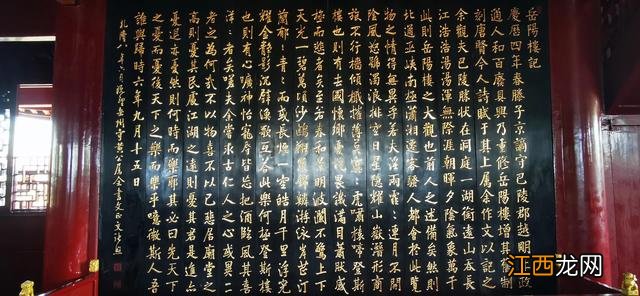 岳陽樓記
慶曆四年春滕子京謫守巴陵郡越明年政
通人和百廢具興乃重修岳陽樓增其舊制
刻唐賢今人詩賦于其上屬余作文以記之
余觀夫巴陵勝狀在洞庭一湖銜遠山吞長
江浩浩湯湯橫無際涯朝暉夕陰氣象萬千
此則岳陽樓之大觀也前人之述備矣然則
北通巫峽南極瀟湘遷客騷人多會於此覽
物之情得無異乎若夫霪雨霏霏連月不開
陰風怒號濁浪排空日星隱耀山嶽潛形商
旅不行檣傾楫摧薄暮冥冥虎嘯猿啼登斯
樓也則有去國懷鄉憂讒畏譏滿目蕭然感
極而悲者矣至若春和景明波瀾不驚上下
天光一碧萬頃沙鷗翔集錦鱗游泳岸芷汀
蘭郁郁青青而或長煙一空皓月千里浮光
耀金靜影沉璧漁歌互答此樂何極登斯樓
也則有心曠神怡寵辱皆忘把酒臨風其喜
洋洋者矣嗟夫余嘗求古仁人之心或異二
者之為何哉不以物喜不以己悲居廟堂之
高則憂其民處江湖之遠則憂其君是進亦
憂退亦憂然則何時而樂耶其必曰先天下
之憂而憂後天下之樂而樂乎噫微斯人吾
誰與歸時六年九月十五日
江西龙网